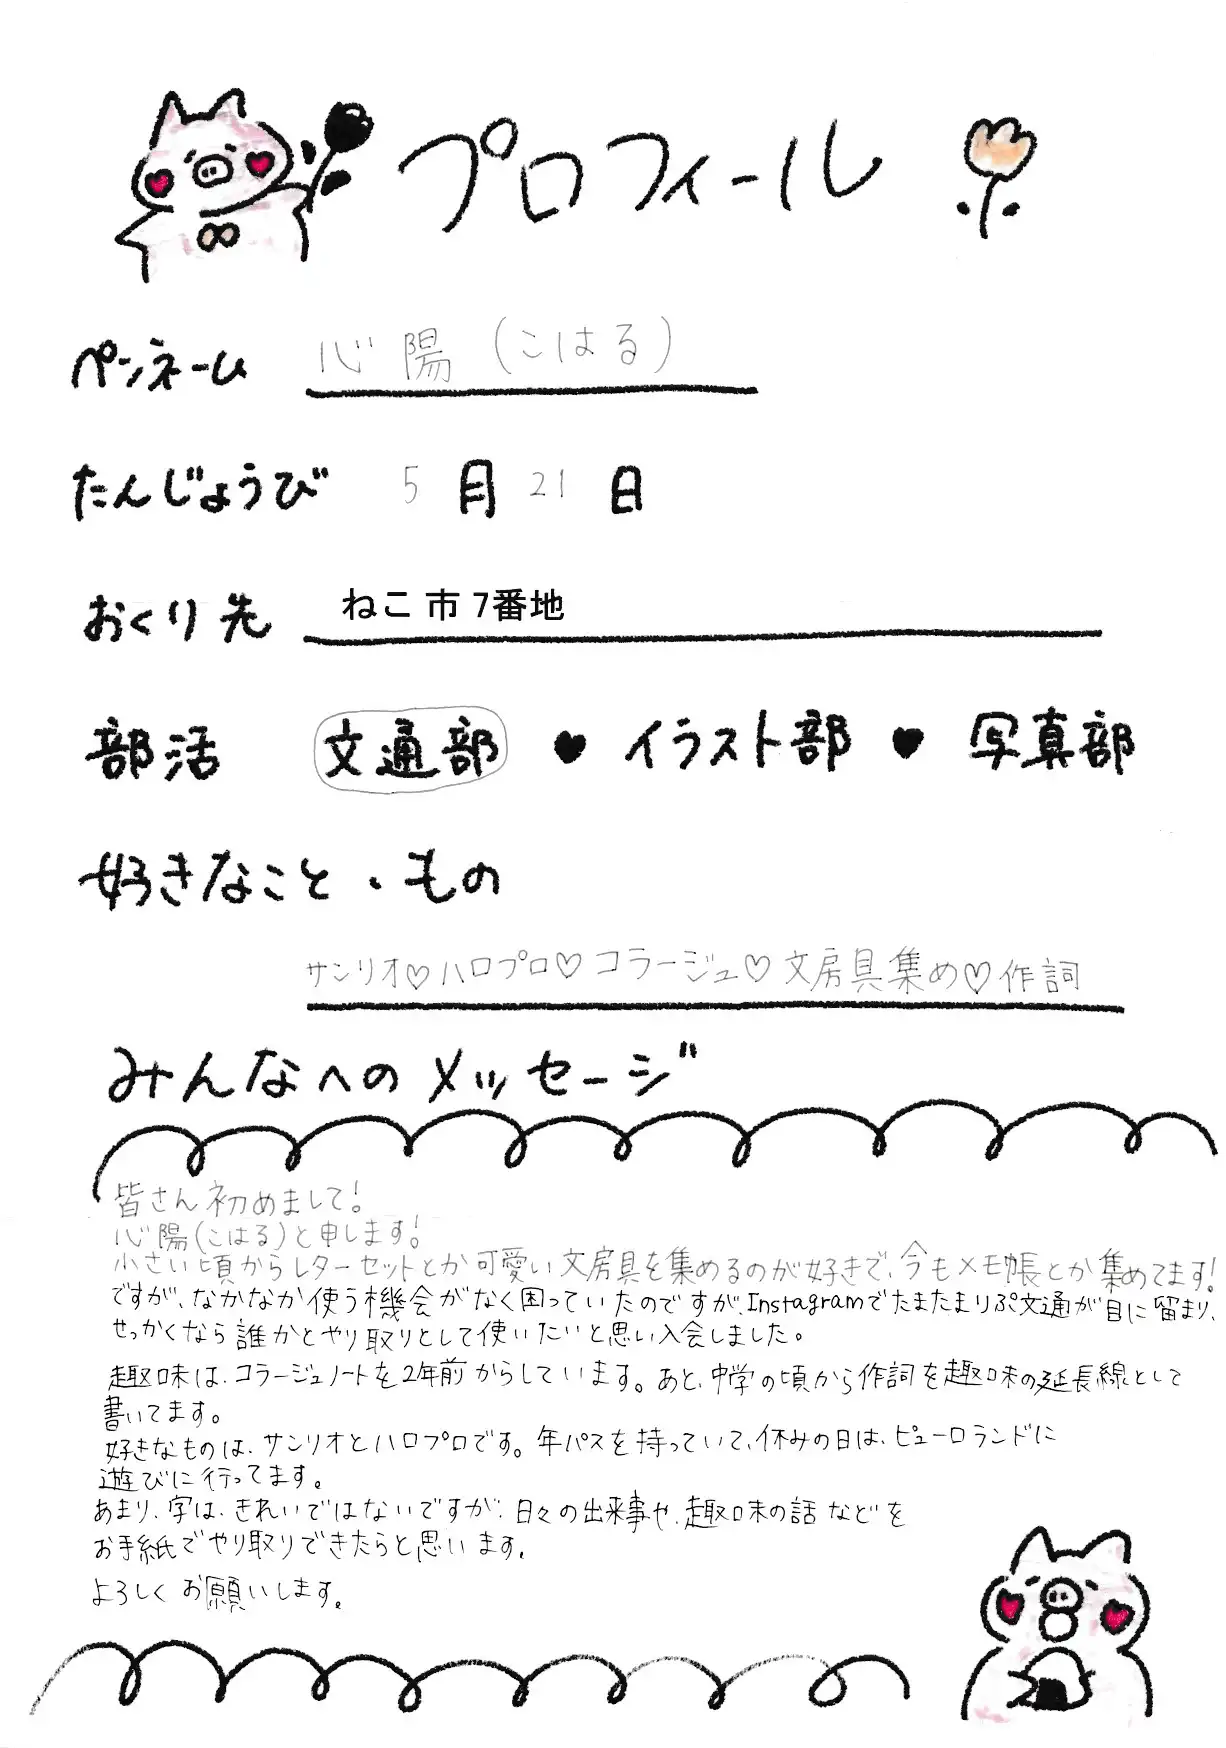 プロフィール
ペンネーム 心陽(こはる)
たんじょうび 5月21日
おくり先 ねこ市 7番地
部活 文通部 ♥ イラスト部 ♥ 写真部
好きなこと・もの
サンリオ♡ハロプロ♡コラージュ♡文房具集め♡作詞
みんなへのメッセージ
皆さん初めまして!
心陽(こはる)と申します!
小さい頃からレターセットとか可愛い文房具を集めるのが好きで、今もメモ帳とか集めてます!
ですが、なかなか使う機会がなく困っていたのですが、Instagramでたまたまりぷ文通が目に留まり、
せっかくなら誰かとやり取りとして使いたいと思い入会しました。
趣味は、コラージュノートを2年前からしています。あと、中学の頃から作詞を趣味の延長線として
書いてます。
好きなものは、サンリオとハロプロです。年パスを持っていて、休みの日は、ピューロランドに
遊びに行ってます。
あまり、字は、きれいではないですが、日々の出来事や、趣味の話などを
お手紙でやり取りできたらと思います。
よろしくお願いします。